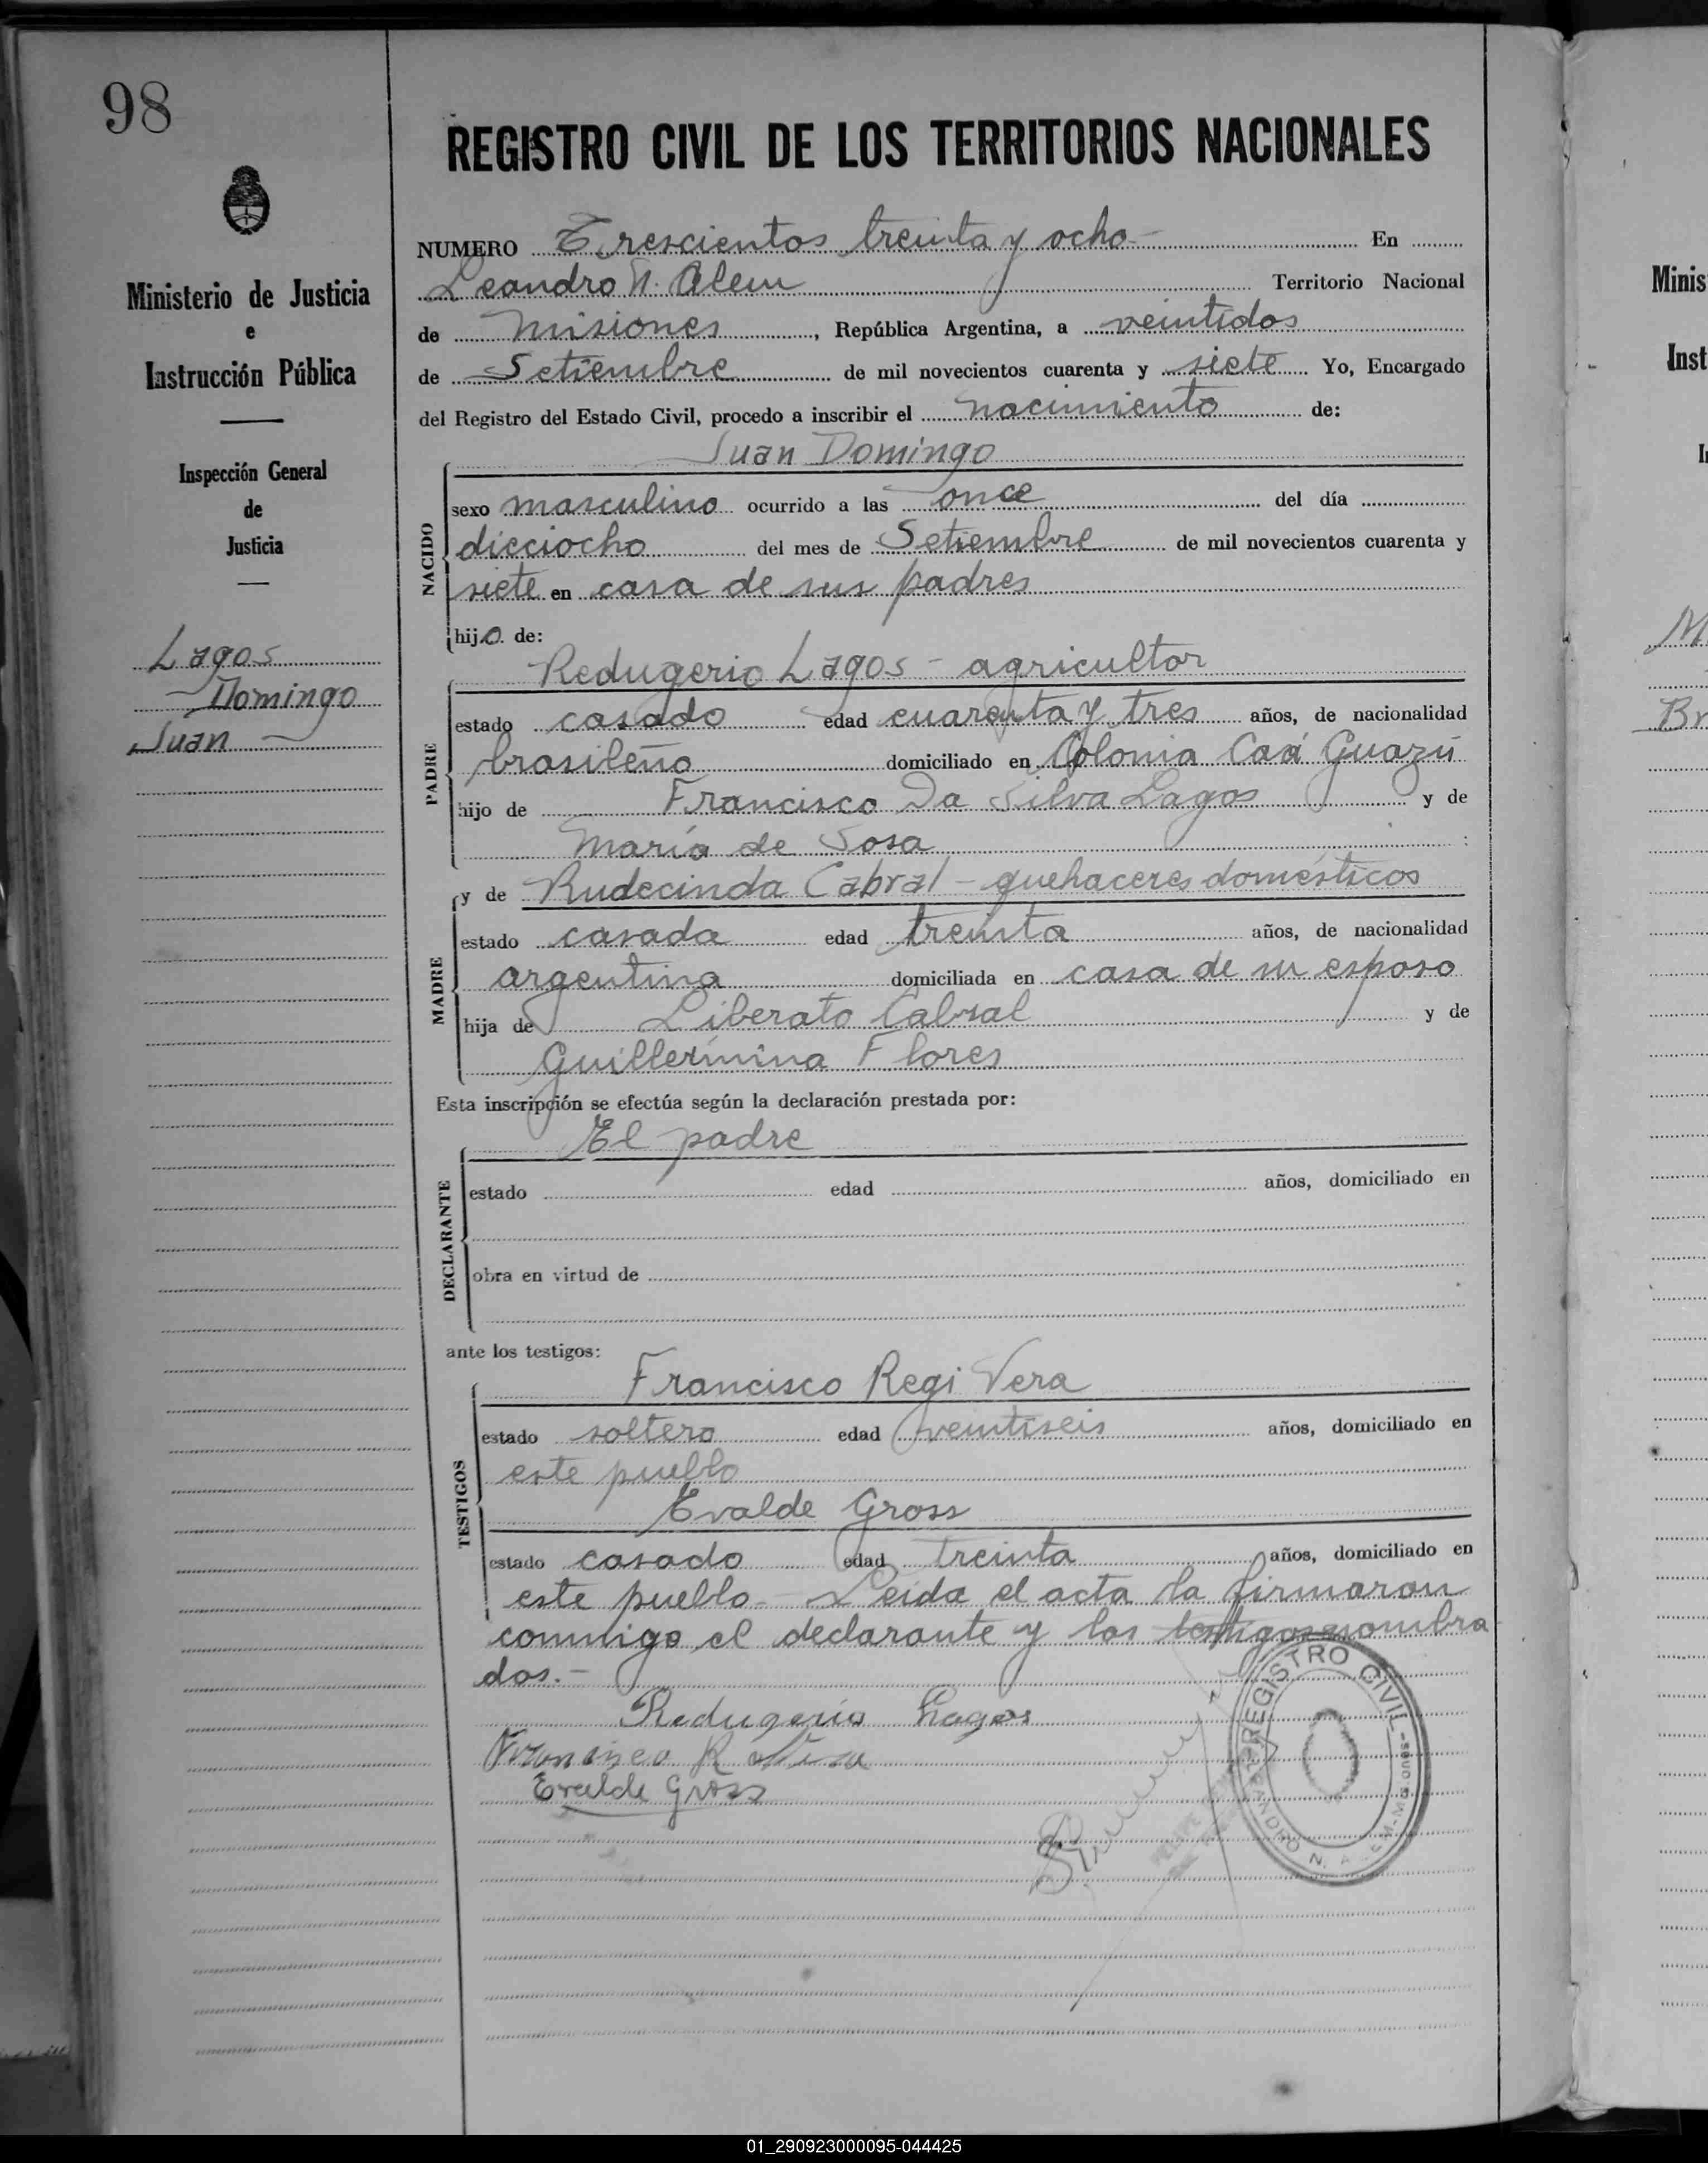 98
Ministerio de Justicia
e
Instrucción Pública
Inspección General
de
Justicia
Lagos
Domingo
Juan
REGISTRO CIVIL DE LOS TERRITORIOS NACIONALES
NUMERO Trescientos treinta y ocho- En
Leandro N. Alem Territorio Nacional
de Misiones, República Argentina, a veintidos
de Setiembre de mil novecientos cuarenta y siete Yo, Encargado
del Registro del Estado Civil, procedo a inscribir el nacimiento de:
Juan Domingo
NACIDO
sexo masculino ocurrido a las once del día
dieciocho del mes de Setiembre de mil novecientos cuarenta y
siete en casa de sus padres
hijo de:
Redugerio Lagos - agricultor
PADRE
estado casado edad cuarenta y tres años, de nacionalidad
brasileño domiciliado en Colonia Caá Guazú
hijo de Francisco Da Silva Lagos y de
María de Sosa
y de Rudecinda Cabral - quehaceres domésticos
MADRE
estado casada edad treinta años, de nacionalidad
argentina domiciliada en casa de su esposo
hija de Liberato Cabral y de
Guillermina Flores
Esta inscripción se efectúa según la declaración prestada por:
El padre
DECLARANTE
estado edad años, domiciliado en
obra en virtud de
ante los testigos:
Francisco Regi Vera
TESTIGOS
estado soltero edad veintiseis años, domiciliado en
este pueblo
Evalde Gross
estado casado edad treinta años, domiciliado en
este pueblo - Leida el acta la firmaron
conmigo el declarante y los testigos nombra
dos.-
Redugerio Lagos
Francisco R
Evalde Gross
REGISTRO CIVIL
LEANDRO N. ALEM - Misiones
Minis
Inst
M
Br
01_290923000095-044425